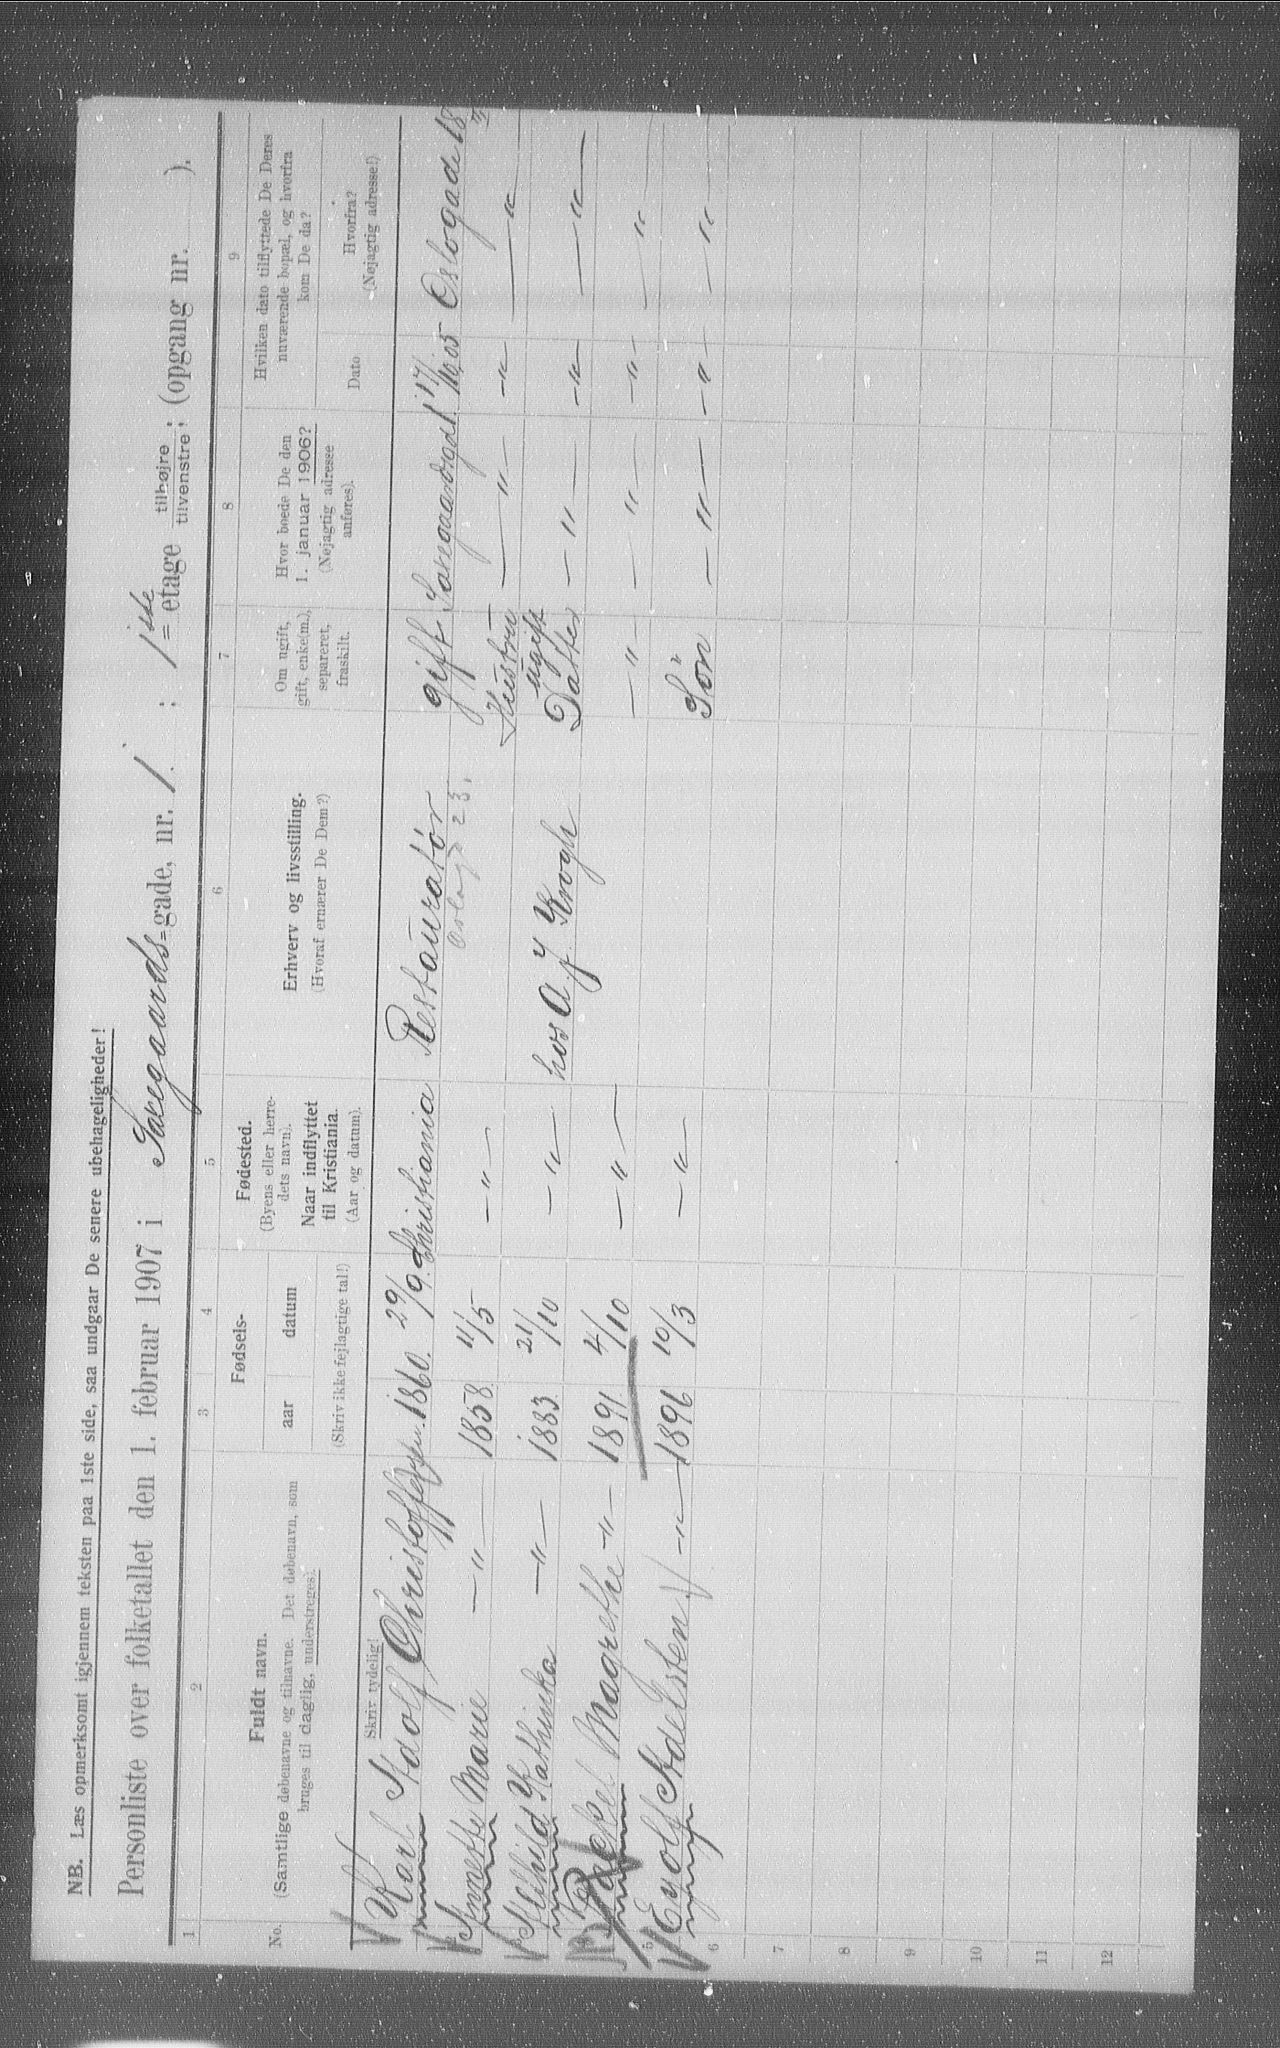 NB. Læs opmerksomt igjennem teksten paa 1ste side, saa undgaar De senere ubehageligheder!
Personliste over folketallet den 1. februar 1907 i Saxegaards=gade, nr. 1. : 1ste = etage tilhøjre, tilvenstre, (opgang nr. ).
1 2 3 4 5 6 7 8 9
No. Fuldt navn. (Samtlige døbenavne og tilnavne. Det døbenavn, som bruges til daglig, understreges).
Skriv tydelig!
Fødsels- aar datum
(Skriv ikke fejlagtige tal!)
Fødested. (Byens eller herredets navn). Naar indflyttet til Kristiania. (Aar og datum).
Erhverv og livsstilling. (Hvoraf ernærer De Dem?)
Om ugift, gift, enke(m.), separeret, fraskilt.
Hvor boede De den 1. januar 1906? (Nøjagtig adresse anføres).
Hvilken dato tilflyttede De Deres nuværende bopæl, og hvorfra kom De da?
Dato Hvorfra? (Nøjagtig adresse!)
Karl Adolf Christoffersen. 1860. 29/9. Christiania Restauratør gift. Saxegaardsgd 1. 17/10,05 Oslogade 18
Oslogd 23.
Annette Marie —"— 1858. 11/5 —"— Hustru —"— —"— —"—
ugift
Alfhild Kathinka —"— 1883. 21/10 —"— hos A. J. Krogh Datter —"— —"— —"—
Magrethe —"— 1891. 4/10 —"— —"— —"— —"— —"—
5
Eyolf Adelsten —"— 1896 10/3 —"— Søn —"— —"— —"—
6
7
8
9
10
11
12